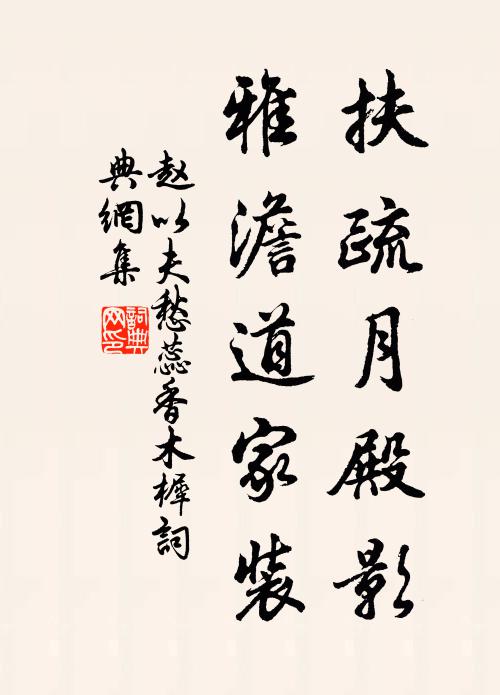 扶疏月殿影
雅澹道家裝
赵以夫愁蕊香木樨詞
典網集
詞典网印